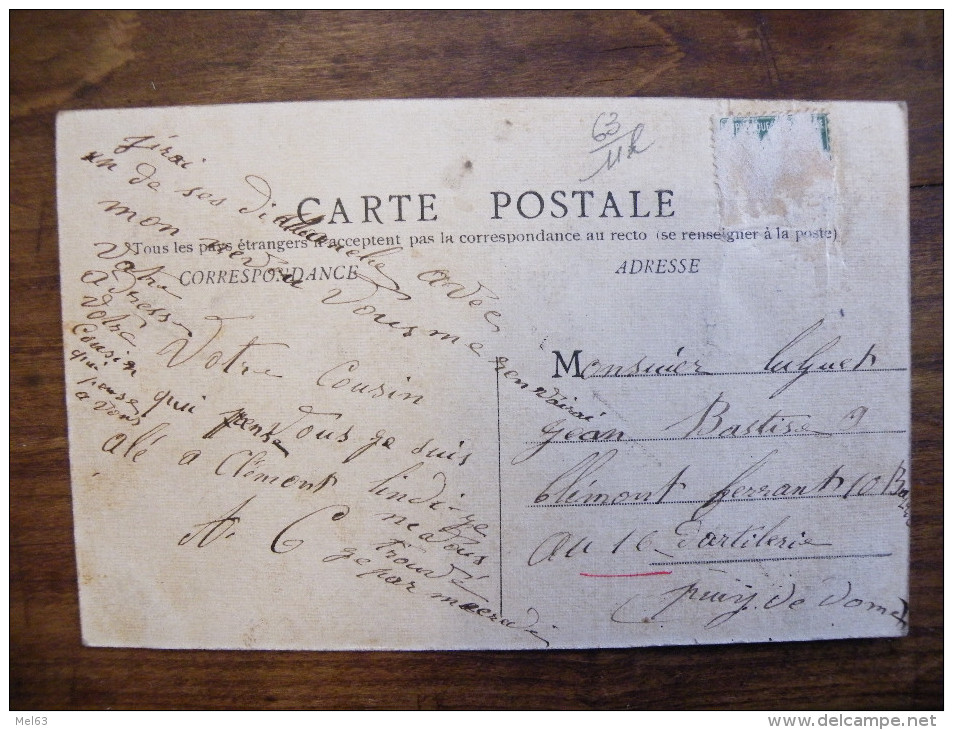 63
CARTE POSTALE
Tous les pays étrangers n'acceptent pas la correspondance au recto (se renseigner à la poste)
CORRESPONDANCE
ADRESSE
J'irai
un de ses dimanche avec
mon a vous me renvairai
votre
adresse
votre
cousin
qui
pense
a vous
Votre Cousin
qui pense Vous je suis
alé a Clémont lindi je
ne a vous
trouvé
A. C je par macredi
Monsieur
Jean Bastise 9
Clémont ferrant 10
au 16 dartilerie
puiy. de dome
Mel63
delcampe.net